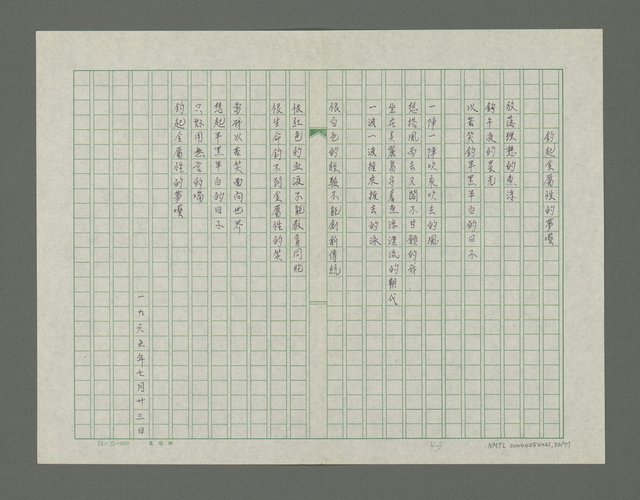 釣起金屬性的夢囈
放落理想的魚
鈎午夜的星光
以苦笑釣半黑半白的日子
一陣一陣吹來吹去的風
想從風而去又關不甘願的我
坐在看著魚漂漂流的朝代
一波一波推來推去的淚
恨白色的經驗不能創新傳統
恨紅色的血液不能教育同胞
恨生命釣不到金屬性的笑
常以苦笑面向世界
想起半黑半白的日子
只好用無言的嘴
釣起金屬性的夢囈
一九六五年七月廿三日
24×25=600
43
NMTL 20060250021